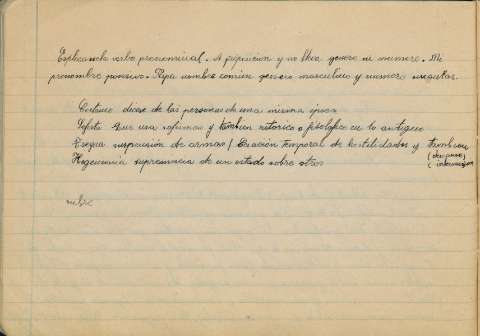 Explicando verbo pronominal. A preposición y no lleva género ni número. Mi
pronombre posesivo. Papa nombre común género masculino y número singular.
Coetáneo dícese de las personas de una misma época
Sofista que usa sofismas y también retórico o filósofo en lo antiguo
Tregua suspensión de armas / Cesación temporal de hostilidades y también
(descanso)
(intermisión
Hegemonía supremacia de un estado sobre otros